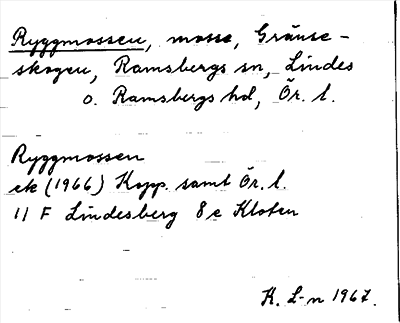 Ryggmossen, mosse, Gränse-
skogen, Ramsbergs sn, Lindes
o. Ramsbergs hd, Ör. l.
Ryggmossen
ek (1966) Kopp. samt Ör. l.
11 F Lindesberg 8 e Kloten
K. L-n 1967.